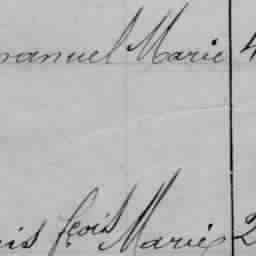 manuel Marie 4
is fçois Marie 2